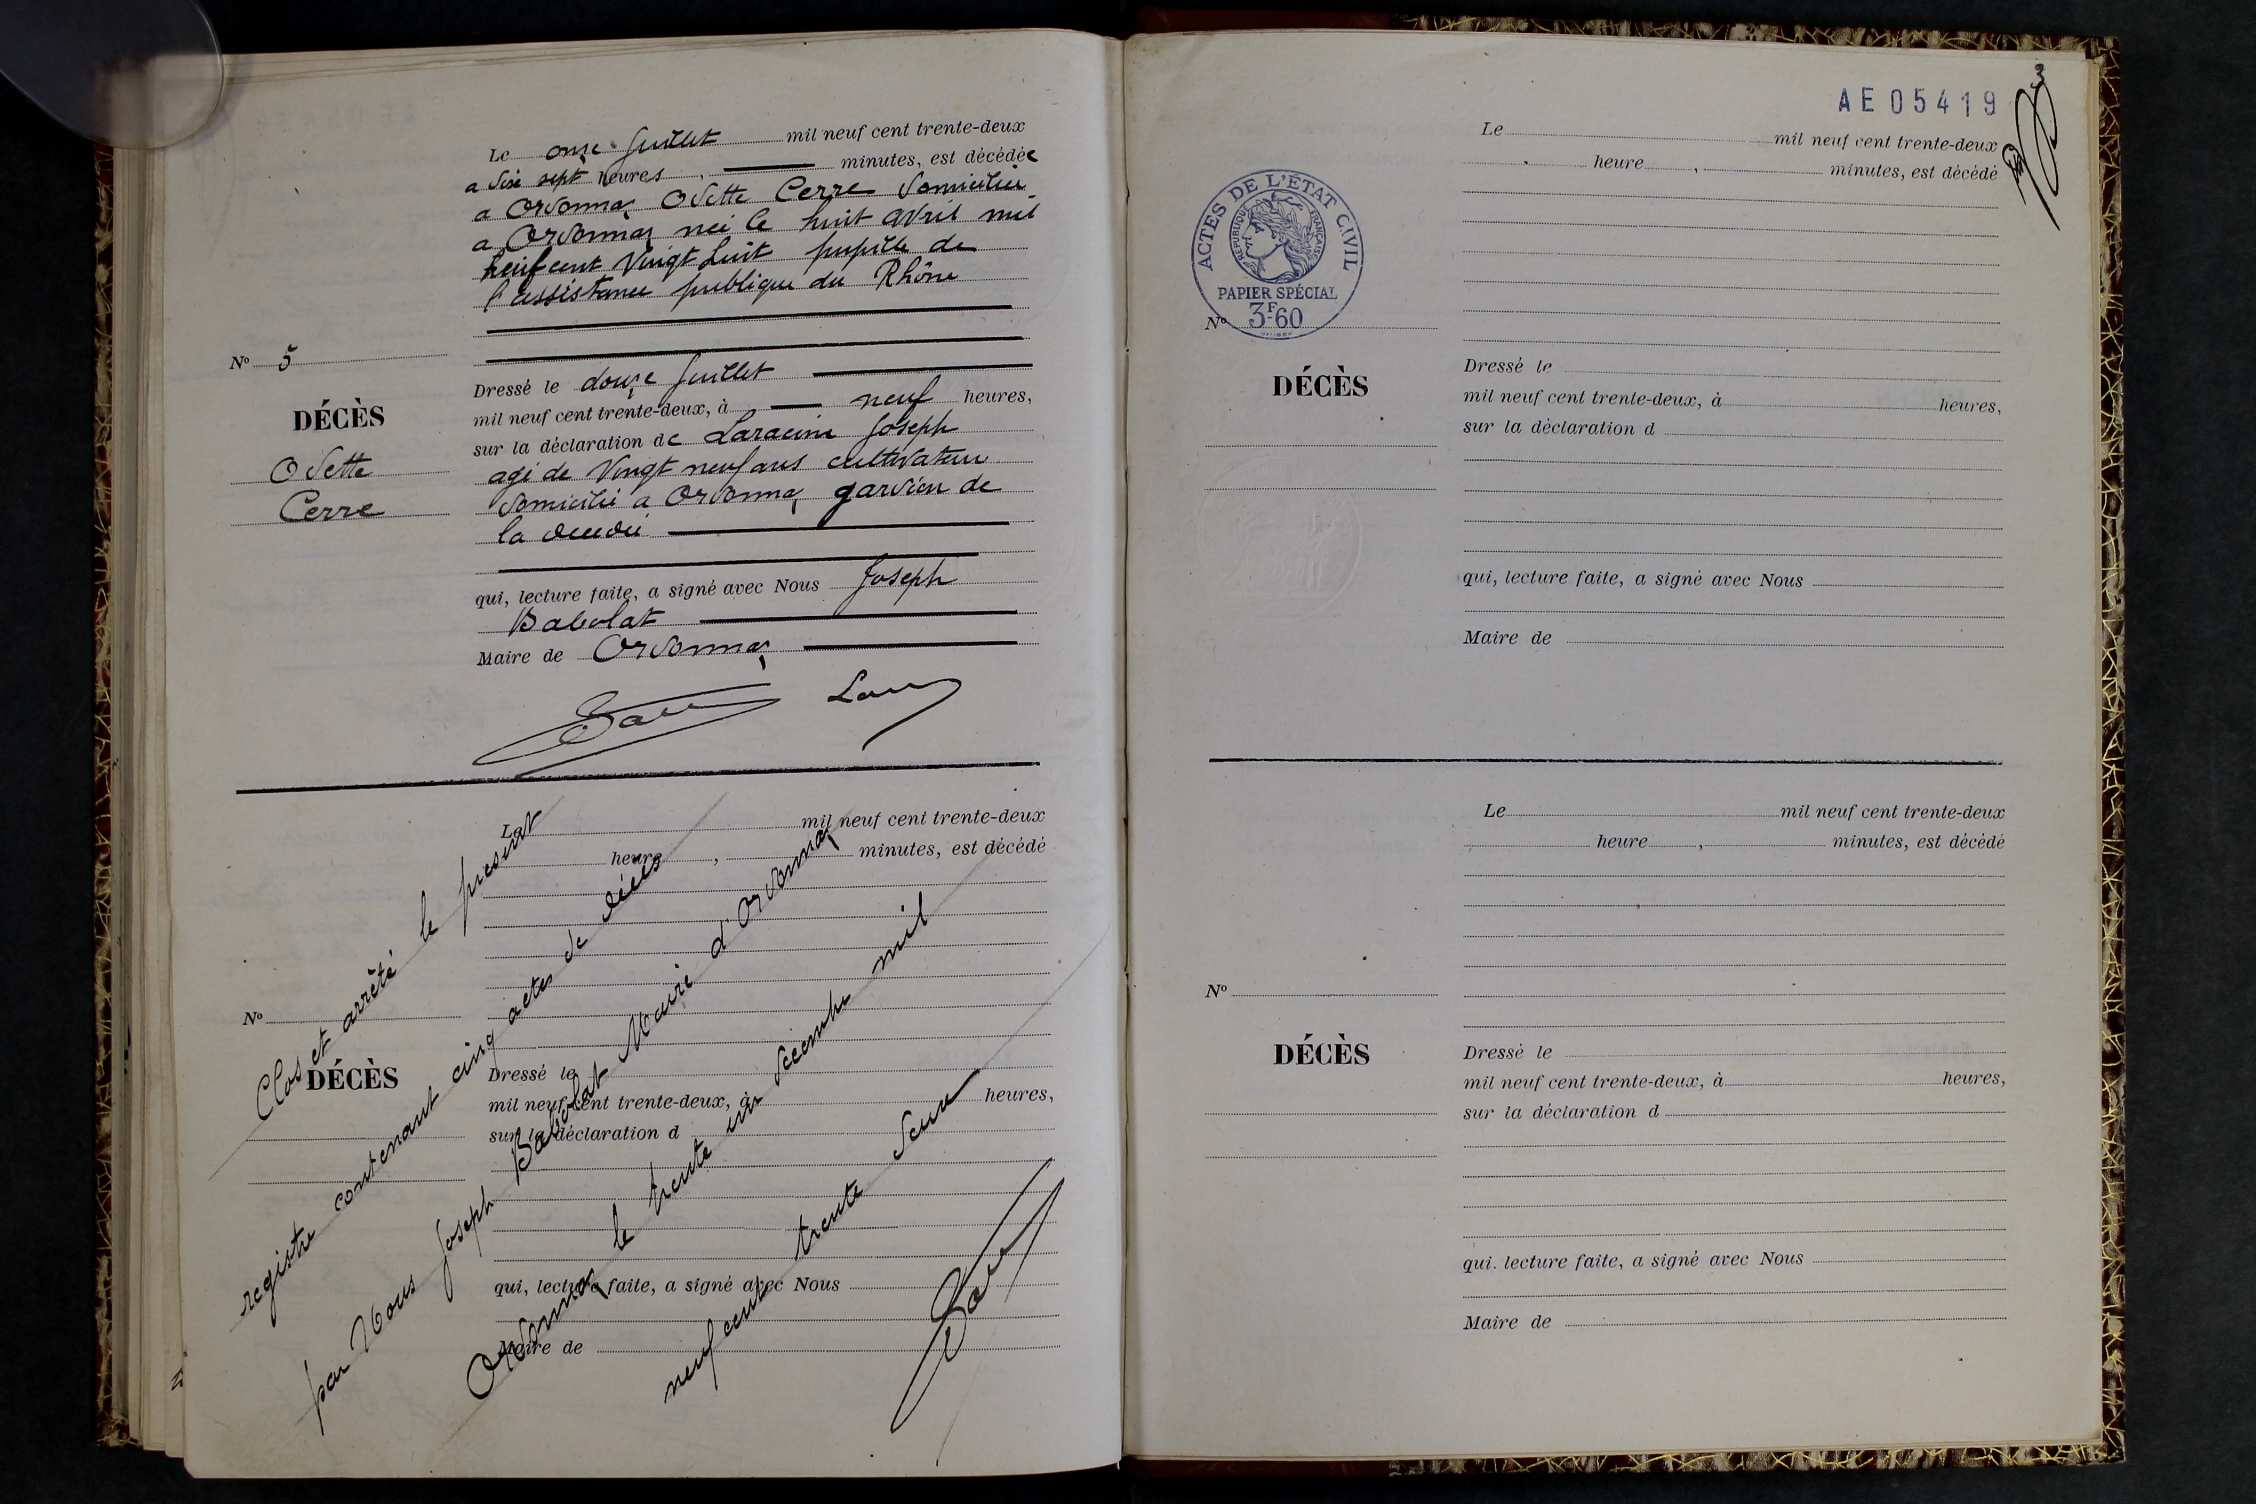 Le onze Juillet mil neuf cent trente-deux
a dix sept heures , minutes, est décédée
a Ordonnaz Odette Cerre domiciliée
a Ordonnaz née le huit avril mil
neuf cent vingt huit pupille de
l'assistance publique du Rhône
No 5
DÉCÈS
Odette
Cerre
Dressé le douze Juillet
mil neuf cent trente-deux, à neuf heures,
sur la déclaration de Laracine Joseph
agé de vingt neuf ans cultivateur
domicilié a Ordonnaz gardien de
la décédée
qui, lecture faite, a signé avec Nous Joseph
Babolat
Maire de Ordonnaz
Le mil neuf cent trente-deux
heure , minutes, est décédé
No
DÉCÈS
Dressé le
mil neuf cent trente-deux, à heures,
sur la déclaration d
qui, lecture faite, a signé avec Nous
Maire de
Clos et arrêté le présent
registre contenant cinq actes de décès
par Nous Joseph Babolat Maire d'Ordonnaz
Ordonnaz le trente un décembre mil
neuf cent trente deux
AE05419
3
Le mil neuf cent trente-deux
heure , minutes, est décédé
ACTES DE L'ÉTAT CIVIL
RÉPUBLIQUE FRANÇAISE
PAPIER SPÉCIAL
3F60
No
DÉCÈS
Dressé le
mil neuf cent trente-deux, à heures,
sur la déclaration d
qui, lecture faite, a signé avec Nous
Maire de
Le mil neuf cent trente-deux
heure , minutes, est décédé
No
DÉCÈS
Dressé le
mil neuf cent trente-deux, à heures,
sur la déclaration d
qui. lecture faite, a signé avec Nous
Maire de